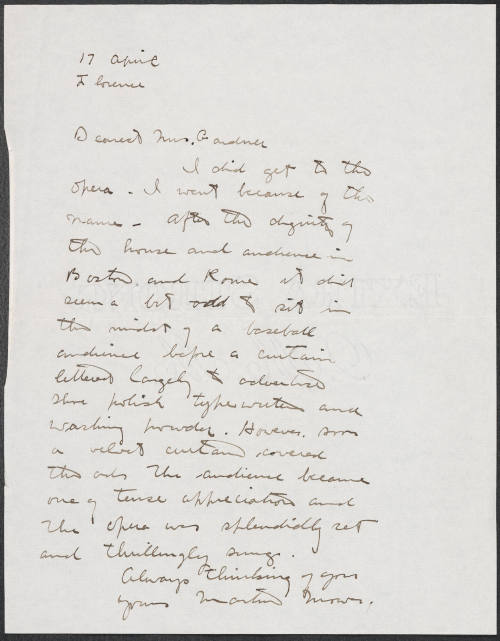 17 April
Florence
Dearest Mrs. Gardner
I did get to the
opera - I went because of the
name - After the dignity of
the house and audience in
Boston and Rome it did
seem a bit odd to sit in
the midst of a baseball
audience before a curtain
lettered largely to advertise
shoe polish typewriters and
washing powder. However, soon
a velvet curtain covered
the ads The audience became
one of tense appreciation and
The opera was splendidly set
and thrillingly sung.
Always thinking of you
yours Martin Mower.